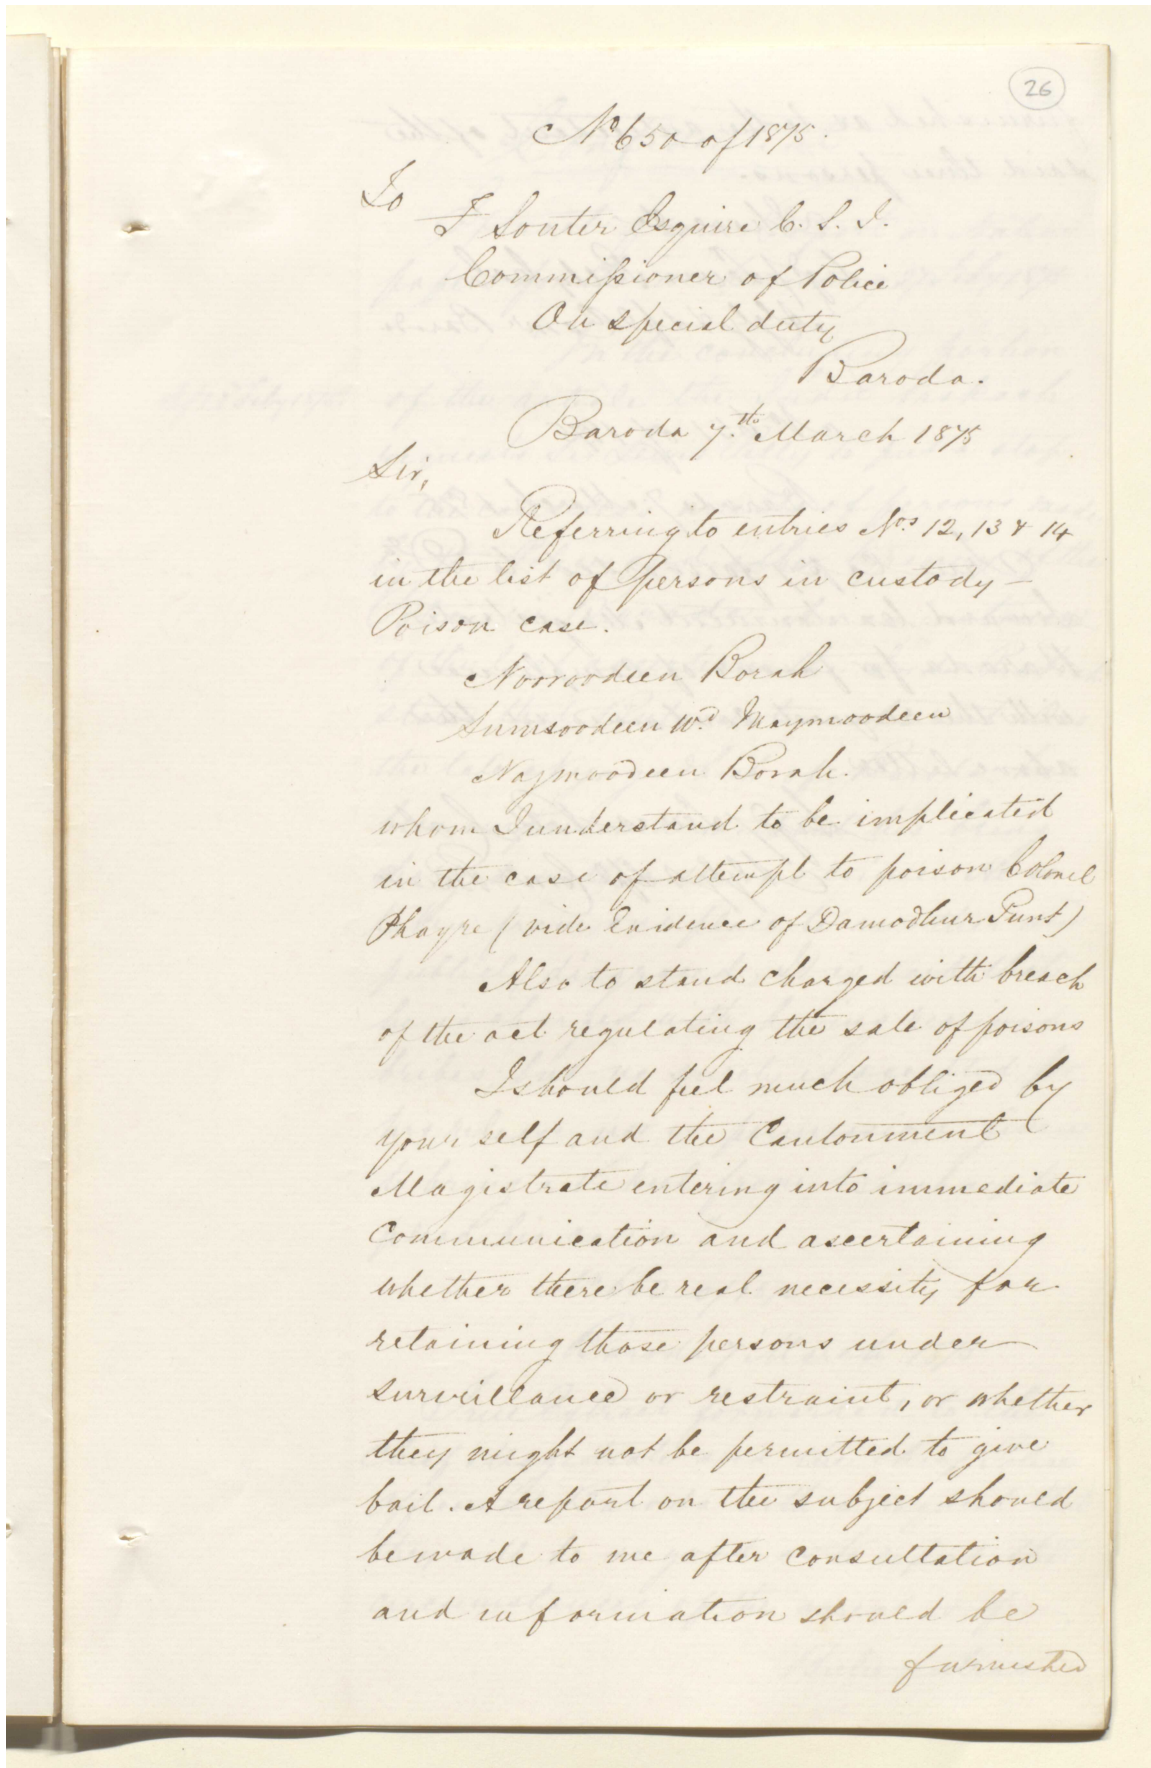 26
No 650 of 1875.
To
F Souter Esquire C. S. I.
Commissioner of Police
On special duty
Baroda.
Baroda 7th March 1875
Sir,
Referring to entries Nos 12, 13 & 14
in the list of persons in custody –
Poison case.
Nooroodeen Borah
Sumsoodeen wd Maymoodeen
Najmoodeen Borah.
whom I understand to be implicated
in the case of attempt to poison Colonel
Phayre (vide Evidence of Damodhur Punt)
Also to stand charged with breach
of the act regulating the sale of poisons
I should feel much obliged by
your self and the Cantonment
Magistrate entering into immediate
Communication and ascertaining
whether there be real necessity for
retaining those persons under
surveillance or restraint, or whether
they might not be permitted to give
bail. A report on the subject should
be made to me after consultation
and information should be
furnished